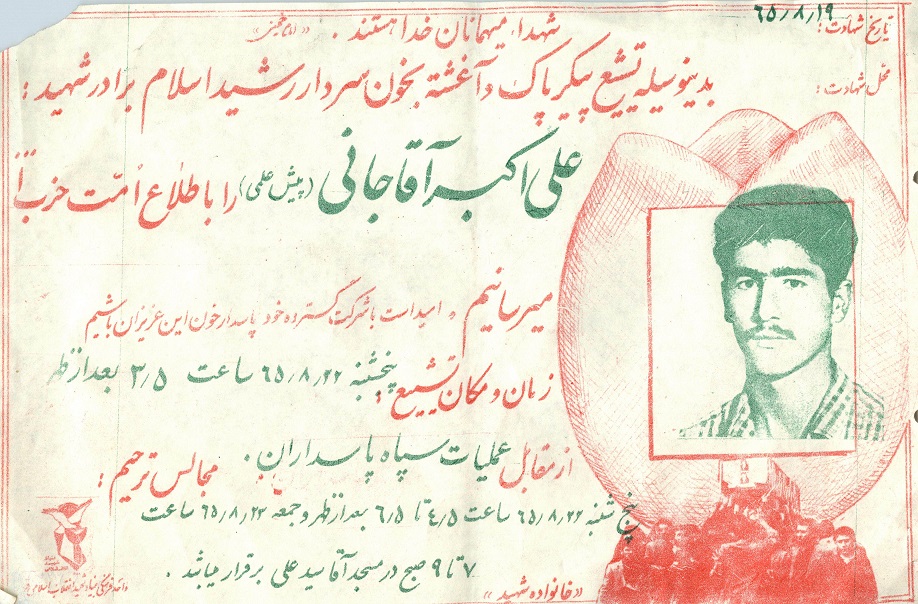 تاریخ شهادت: ۶۵/۸/۱۹
شهداء میهمانان خدا هستند. «امام خمینی»
محل شهادت:
بدینوسیله تشیع پیکر پاک و آغشته بخون سردار رشید اسلام برادر شهید:
علی اکبر آقاجانی (پیش علمی) را باطلاع امت حزب ا...
میرسانیم و امید است با شرکت گسترده خود پاسدار خون این عزیزان باشیم
زمان و مکان تشییع: پنجشنبه ۶۵/۸/۲۲ ساعت ۳/۵ بعد از ظهر
از مقابل عملیات سپاه پاسداران. مجالس ترحیم:
پنج شنبه ۶۵/۸/۲۲ ساعت ۴/۵ تا ۶/۵ بعد از ظهر و جمعه ۶۵/۸/۲۳ ساعت
۷ تا ۹ صبح در مسجد آقا سید علی برقرار میباشد.
«خانواده شهید»
واحد فرهنگی بنیاد شهید انقلاب اسلامی